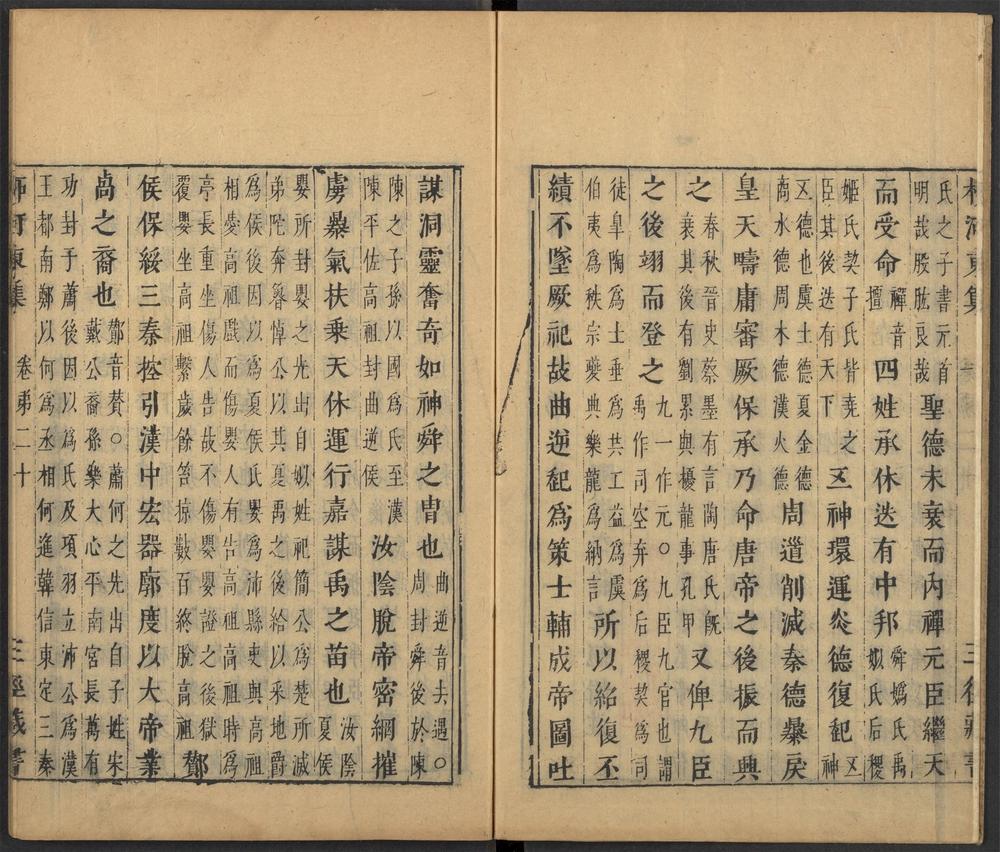 柳河東集 三徑藏書
氏之子書元首
明哉股肱良哉
聖德未衰而内禪元臣繼天
而受命
禪音
擅
四姓承休迭有中邦
舜媯氏禹
姒氏后稷
姬氏契子氏皆堯之
臣其後迭有天下
五神環運炎德復起
五
神
五德也虞土德夏金德
商水德周木德漢火德
周道削滅秦德暴戾
皇天疇庸審厥保承乃命唐帝之後振而興
之
春秋晉史蔡墨有言陶唐氏旣
衰其後有劉累與擾龍事孔甲
又俾九臣
之後翊而登之
九一作元○九臣九官也謂
禹作司空弃爲后稷契爲司
徒皐陶爲士垂爲共工益爲虞
伯夷爲秩宗夔典樂龍爲納言
所以紹復丕
績不墜厥祀故曲逆起爲策士輔成帝圖吐
謀洞靈奮奇如神舜之冑也
曲逆音去遇○
周封舜後於陳
陳之子孫以國爲氏至漢
陳平佐高祖封曲逆侯
汝陰脫帝密網摧
虜暴氣扶乘天休運行嘉謀禹之苗也
汝陰
夏侯
嬰所封嬰之先出自姒姓祀簡公爲楚所滅
弟佗奔魯悼公以其夏禹之後給以采地爵
爲侯後因以爲夏侯氏嬰爲沛縣吏與高祖
相愛高祖戲而傷嬰人有告高祖高祖時爲
亭長重坐傷人告故不傷嬰嬰證之後獄
覆嬰坐高祖繫歲餘笞掠數百終脫高祖
酇
侯保綏三秦控引漢中宏器廓度以大帝業
卨之裔也
酇音賛○蕭何之先出自子姓宋
戴公裔孫樂大心平南宮長萬有
功封于蕭後因以爲氏及項羽立沛公爲漢
王都南鄭以何爲丞相何進韓信東定三秦
柳河東集 卷第二十 三徑藏書